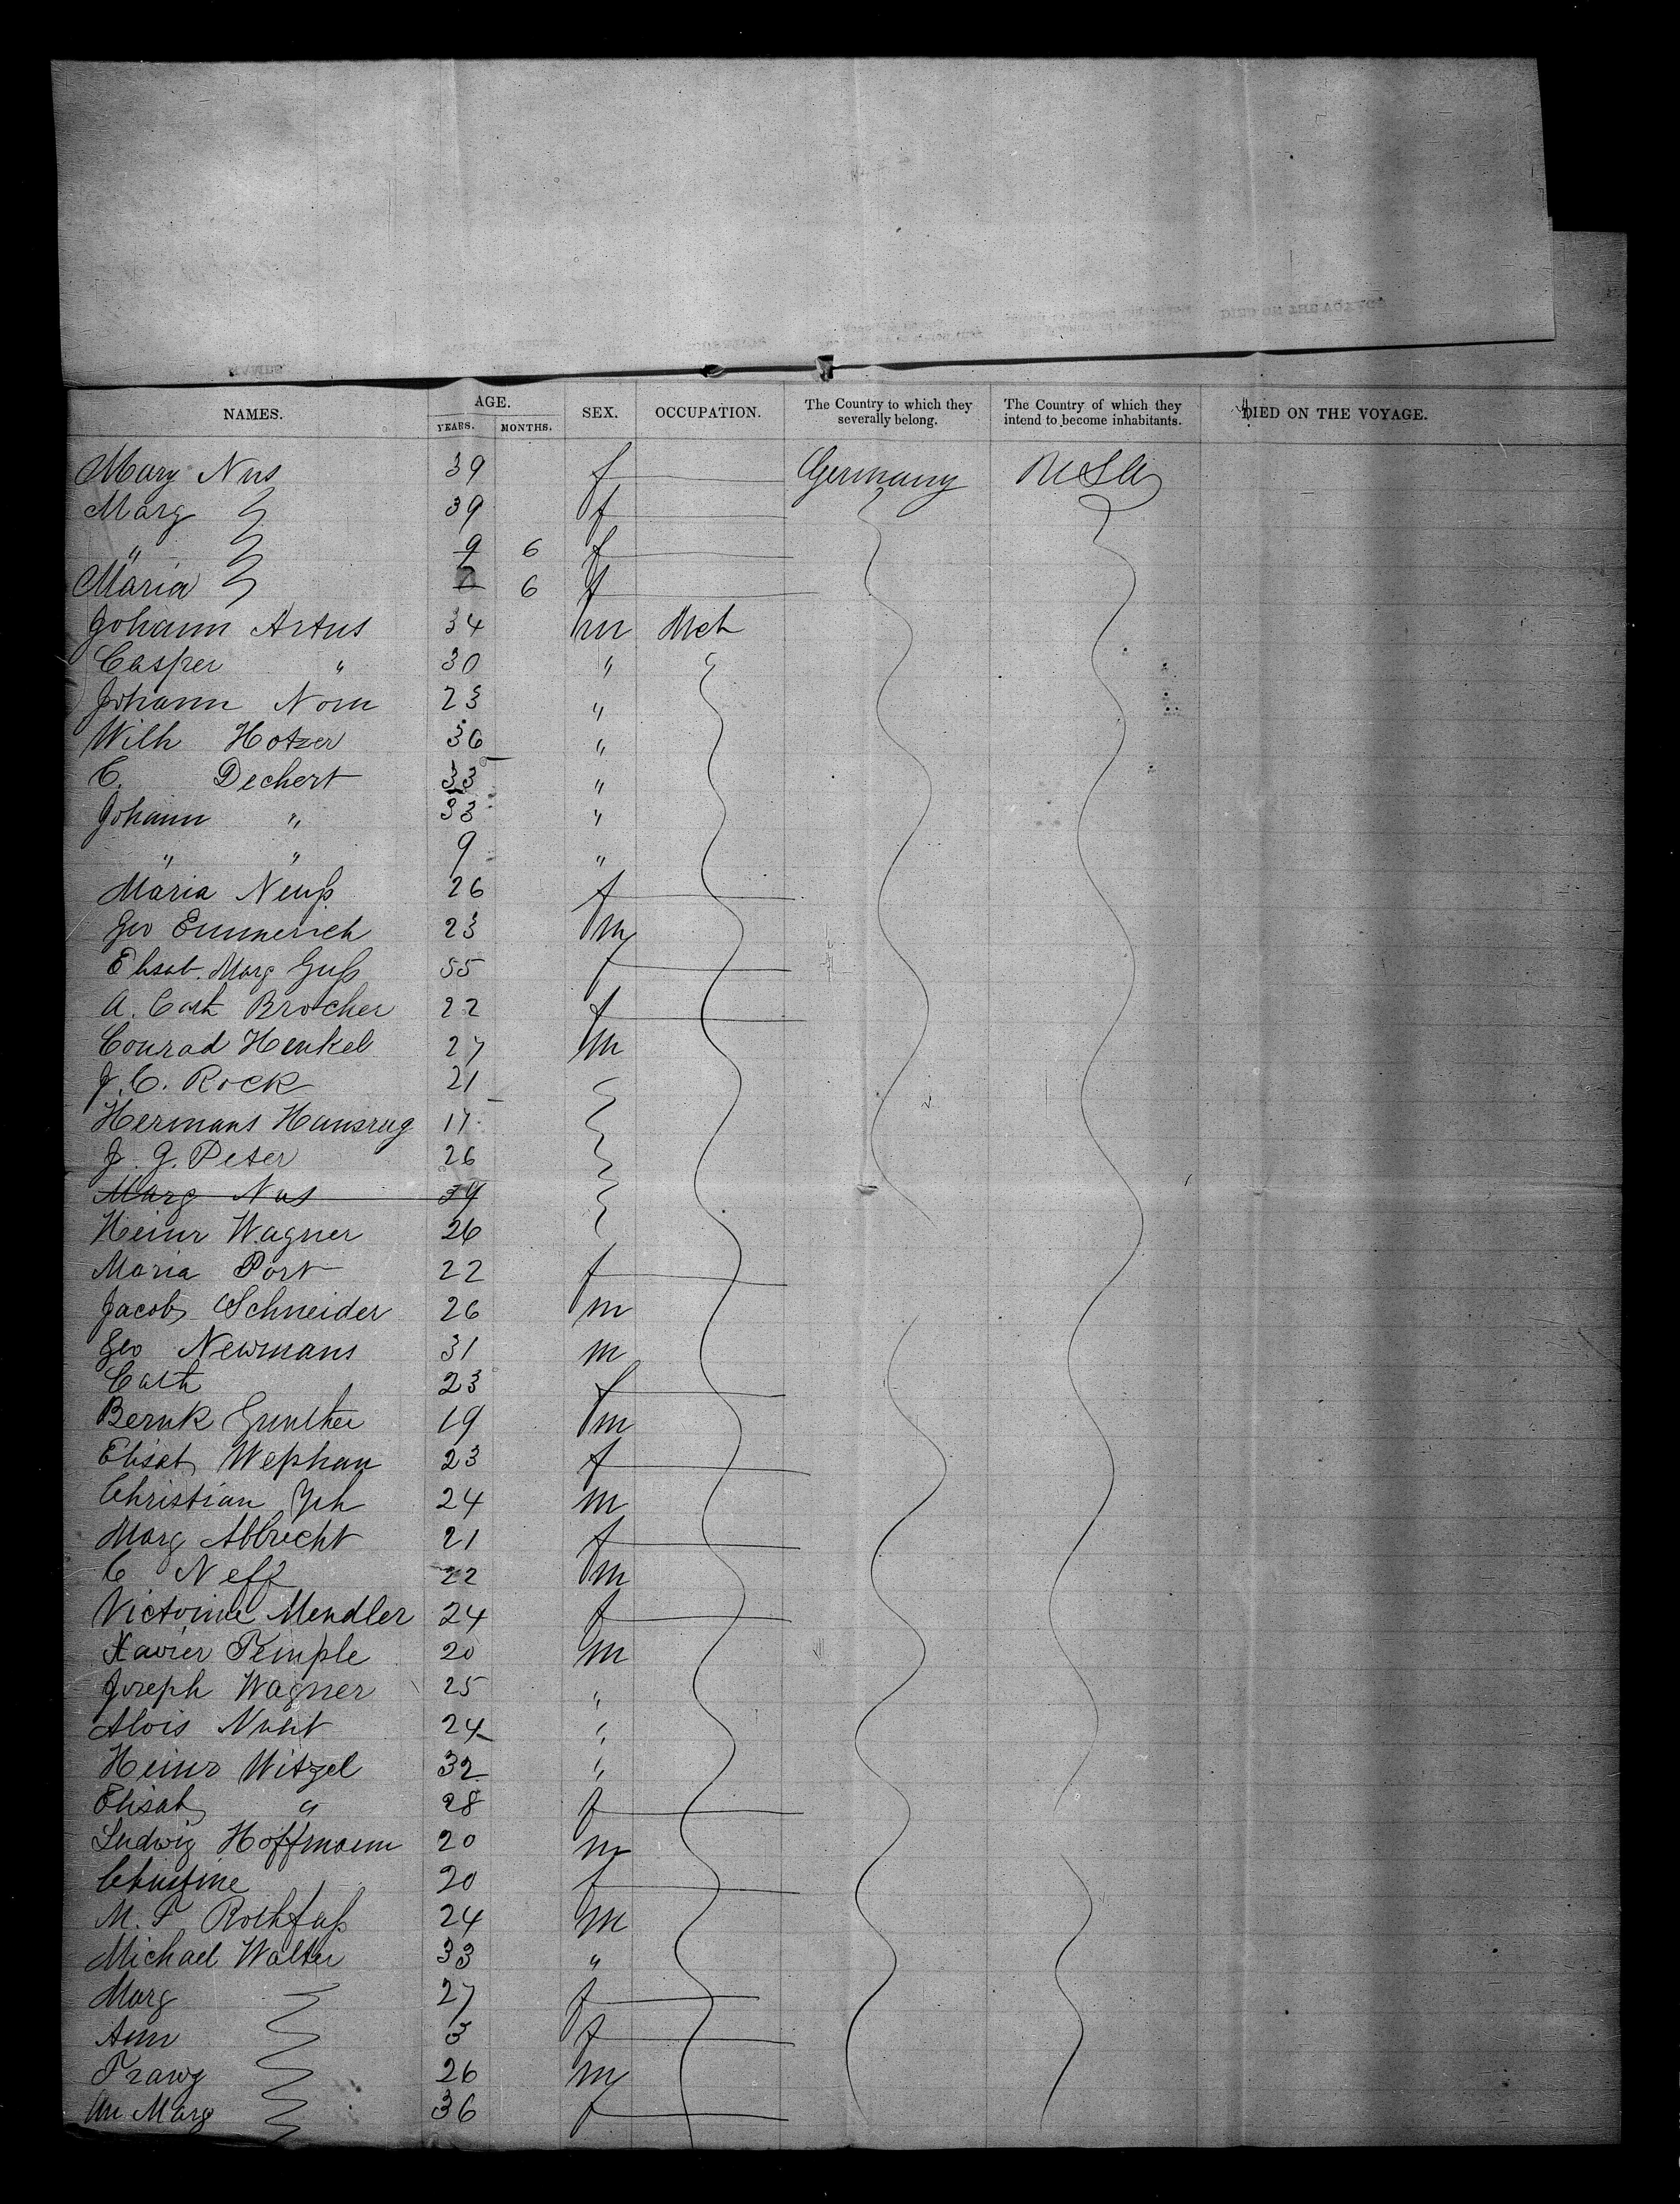 NAMES. AGE. YEARS. MONTHS. SEX. OCCUPATION. The Country to which they severally belong. The Country of which they intend to become inhabitants. DIED ON THE VOYAGE.
Mary Nus 39 f Germany USA
Marg 39 f
" 9 6 f
Maria 6 f
Johann Artus 34 m Mch
Casper " 30 "
Johann Norn 23 "
Wilh Hotzer 36 "
C. Dechert 33 "
Johann " 33 "
" " 9 "
Maria Neuß 26 f
Geo Emmerich 23 m
Elisab. Marg Guß 55 f
A. Cath Brocher 22 f
Conrad Henkel 27 m
J. C. Rock 21
Hermans Hansrug 17
J. G. Peter 26
Marg Nus 39
Heinr Wagner 26
Maria Port 22 f
Jacob Schneider 26 m
Geo Newmans 31 m
Cath 23 f
Bernk Gunther 19 m
Elisab Wephan 23 f
Christian 24 m
Marg Albrecht 21 f
C Neff 22 m
Victorine Mendler 24 f
Xavier Temple 20 m
Joseph Wagner 25 "
Alois 24 "
Heinr Witzel 32 "
Elisab " 28 f
Ludwig Hoffmann 20 m
Christine 20 f
M. F Rothfuß 24 m
Michael Walter 33 "
Marg 27 f
Ann 3 f
Franz 26 m
An Marg 36 f